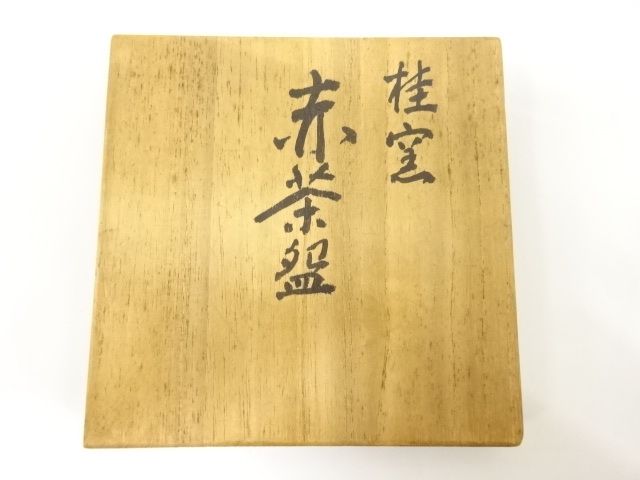 桂窯
赤茶盌